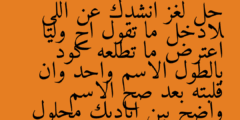 حل لغز انشدك عن اللي
لادخل ما تقول اح وليا
اعترض ما تطلعه كود
بالطول الاسم واحد وان
قلبته بعد صح الاسم
واضح بين اياديك محلول